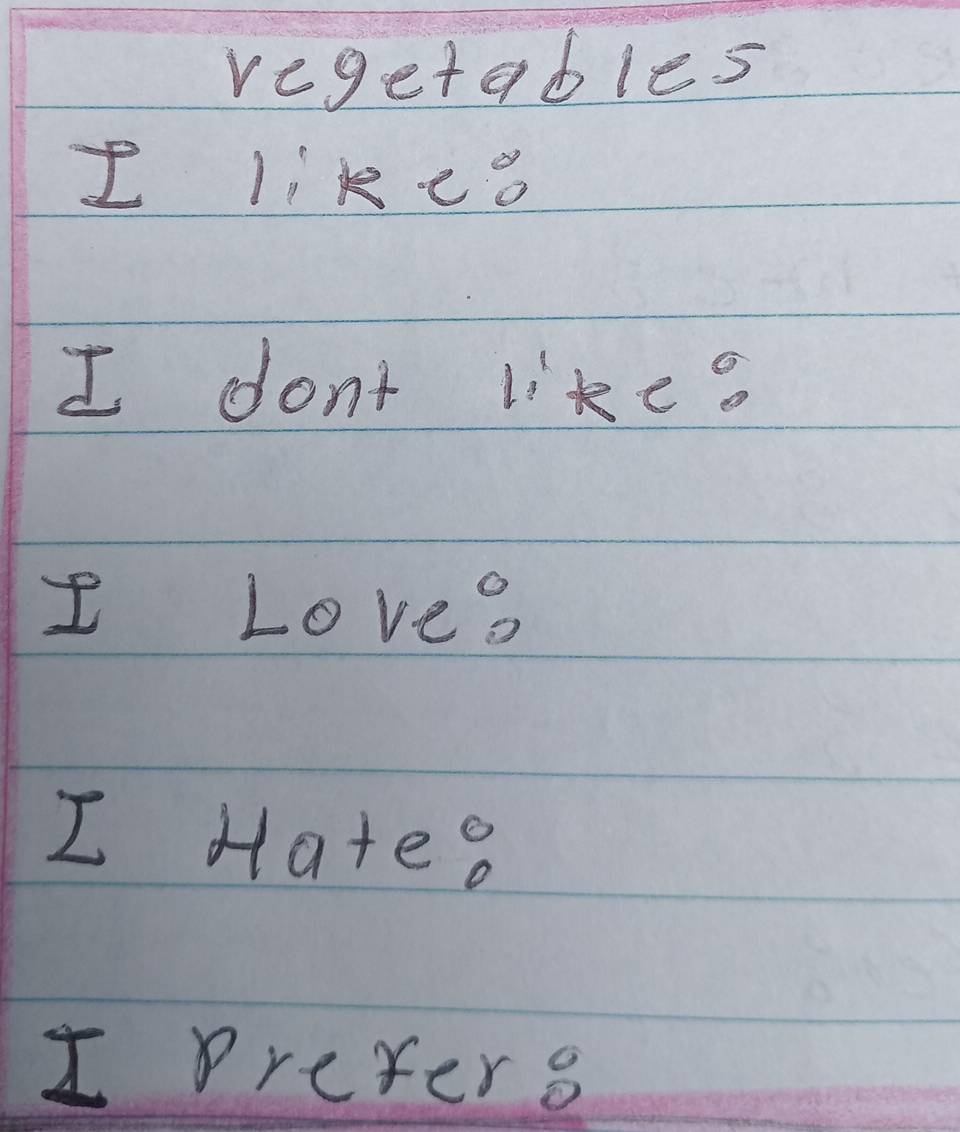 vegetables
I like:
I dont like:
I Love:
I Hate:
I Prefer: